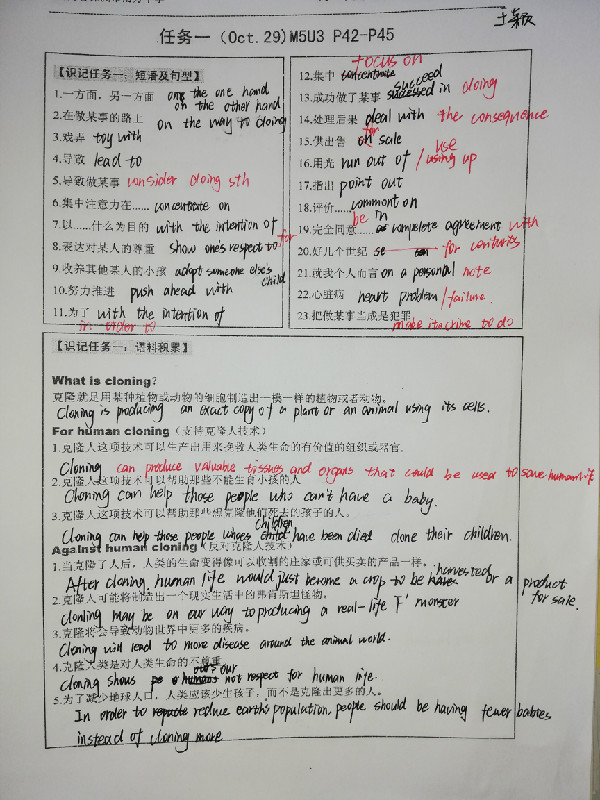 任务一（Oct.29)M5U3 P42-P45
【识记任务一：短语及句型】
1.一方面，另一方面 on the one hand
on the other hand
2.在做某事的路上 on the way to doing
3.戏弄 toy with
4.导致 lead to
5.导致做某事 consider doing sth
6.集中注意力在...... concentrate on
7.以......什么为目的 with the intention of
8.表达对某人的尊重 show one's respect to for
9.收养其他某人的小孩 adopt someone else's
child
10.努力推进 push ahead with
11.为了 with the intention of
in order to
focus on
12.集中 concentrate
13.成功做了某事 succeed in doing
14.处理后果 deal with the consequence
15.供出售 for sale
16.用光 run out of / use
using up
17.指出 point out
18.评价...... comment on
19.完全同意...... be in complete agreement with
20.好几个世纪 for centuries
21.就我个人而言 on a personal note
22.心脏病 heart problem / failure
23.把做某事当成是犯罪
make it a crime to do
【识记任务一：语料积累】
What is cloning?
克隆就是用某种植物或动物的细胞制造出一模一样的植物或者动物。
Cloning is producing an exact copy of a plant or an animal using its cells.
For human cloning（支持克隆人技术）
1.克隆人这项技术可以生产出用来挽救人类生命的有价值的组织或器官。
Cloning can produce valuable tissues and organs that could be used to save human life
2.克隆人这项技术可以帮助那些不能生育小孩的人
Cloning can help those people who can't have a baby.
3.克隆人这项技术可以帮助那些想克隆他们死去的孩子的人。
children
Cloning can help those people whoes have been died clone their children.
Against human cloning（反对克隆人技术）
1.当克隆了人后，人类的生命变得像可以收割的庄家或可供买卖的产品一样。
harvested
After cloning, human life would just become a crop to be or a product
for sale.
2.克隆人可能将制造出一个现实生活中的弗肯斯坦怪物。
Clonling may be on our way to producing a real-life 'F' monster
3.克隆将会导致动物世界中更多的疾病。
Cloning will lead to more disease around the animal world.
4.克隆人类是对人类生命的不尊重
our
Cloning shows not respect for human life.
5.为了减少地球人口，人类应该少生孩子，而不是克隆出更多的人。
In order to reduce earth's population, people should be having fewer babies
instead of cloning more